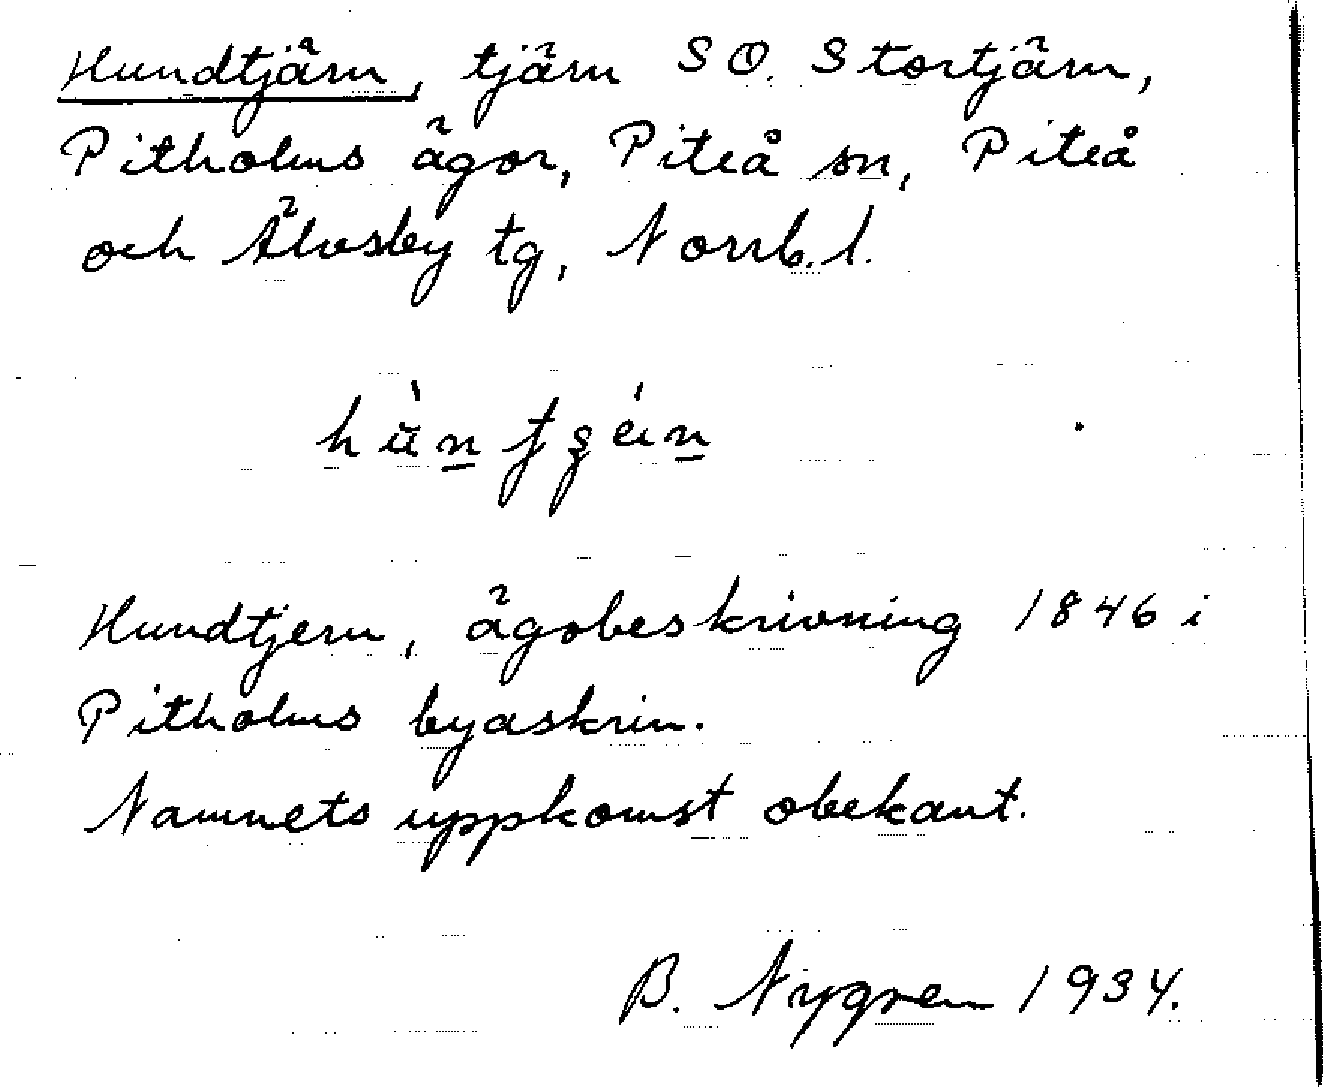 Hundtjärn, tjärn S O. Stortjärn,
Pitholms ägor, Piteå sn, Piteå
och Älvsby tg, Norrb. l.
Hundtjern, ägobeskrivning 1846 i
Pitholms byaskrin.
Namnets uppkomst obekant.
B. Nygren 1934.